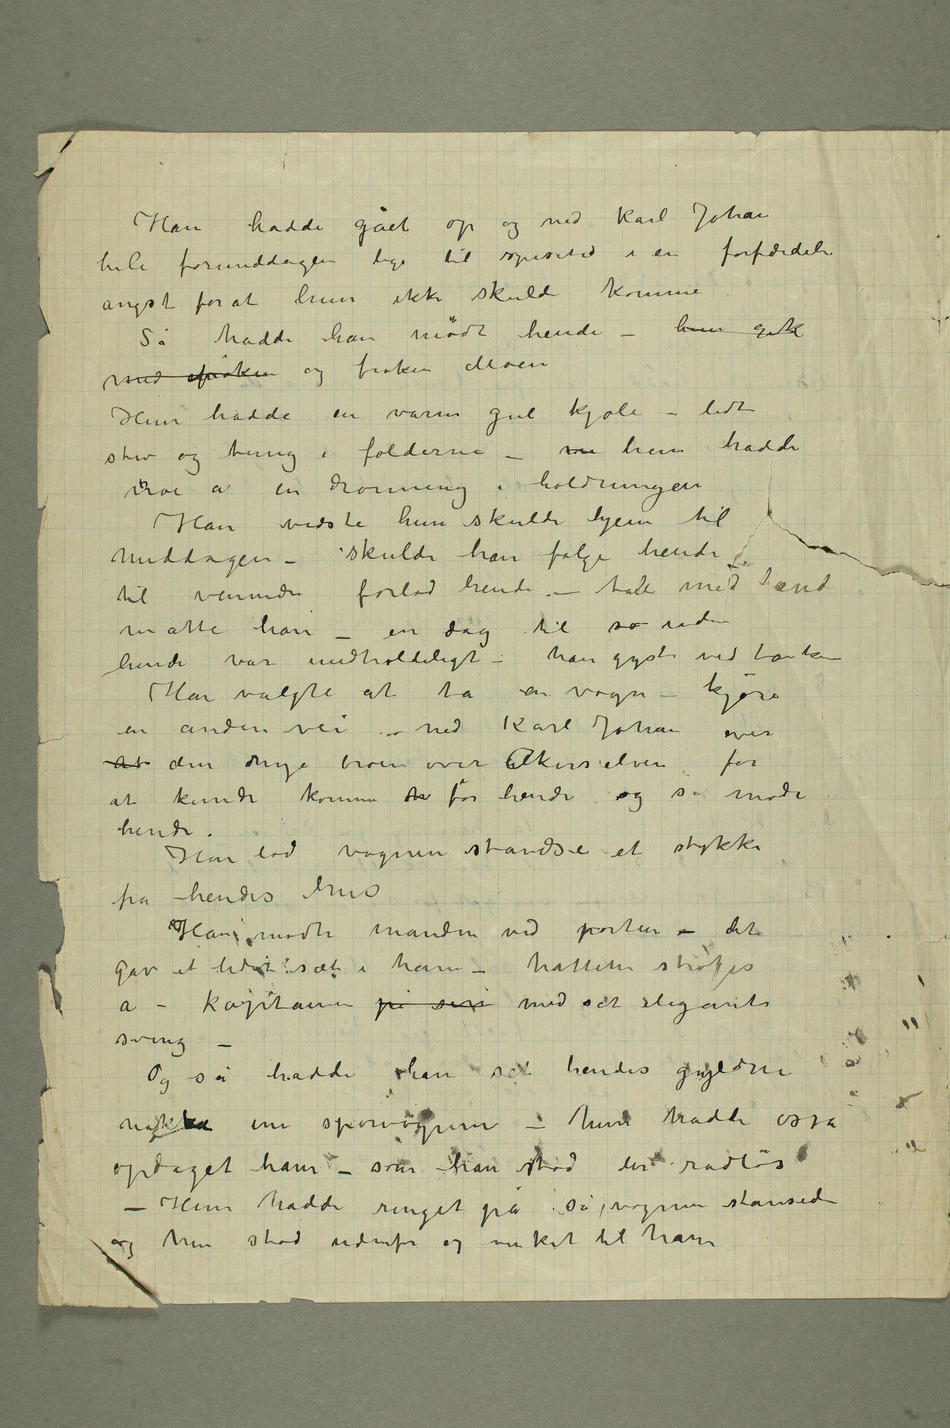 Han hadde gået op og ned Karl Johan
hele formiddagen lige til spisetid i en forfærdelig
angst for at hun ikke skulde komme
Så hadde han mødt hende – hun gik
med frøken og frøken Moen
Hun hadde en varm gul kjole – lidt
stiv og tung i folderne – hun hadde
noe a en dronning i holdningen
Han vidste hun skulde hjem til
middagen – skulde han følge hende
til veninden forlod hende – tale med hend
måtte han – en dag til uden
hende var uudholdeligt – han gyste ved tanken
Han valgte at ta en vogn – kjøre
en anden vei – ned Karl Johan over
den nye broen over Akerselven for
at kunde komme før hende og så møde
hende.
Han lod vognen standse et stykke
fra hendes hus
Han mødte manden ved porten – det
gav et lidet sæt i ham – hatten strøks
a – kapitainen på sin med set elegante
sving –
Og så hadde han set hendes gyldne
nakke inn sporvognen – hun hadde også
opdaget ham – som han stod der rådløs
– Hun hadde ringet på så vognen stansede
og hun stod udenfor og vinket til ham